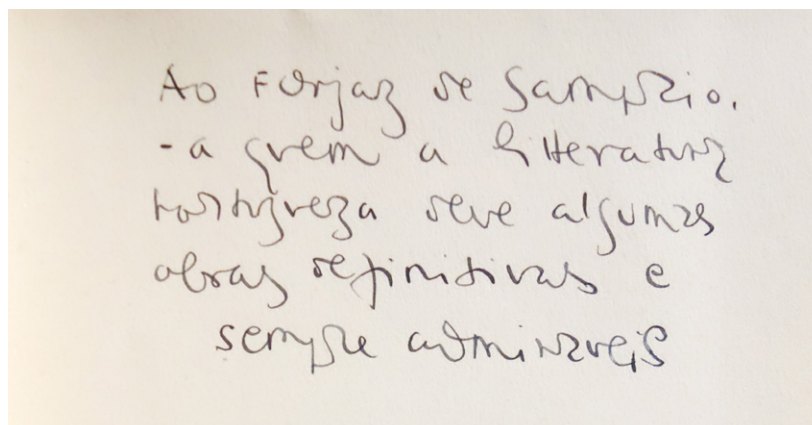 Ao Forjaz de Sampaio.
- a quem a litteratura
portugueza deve algumas
obras definitivas e
sempre admiraveis